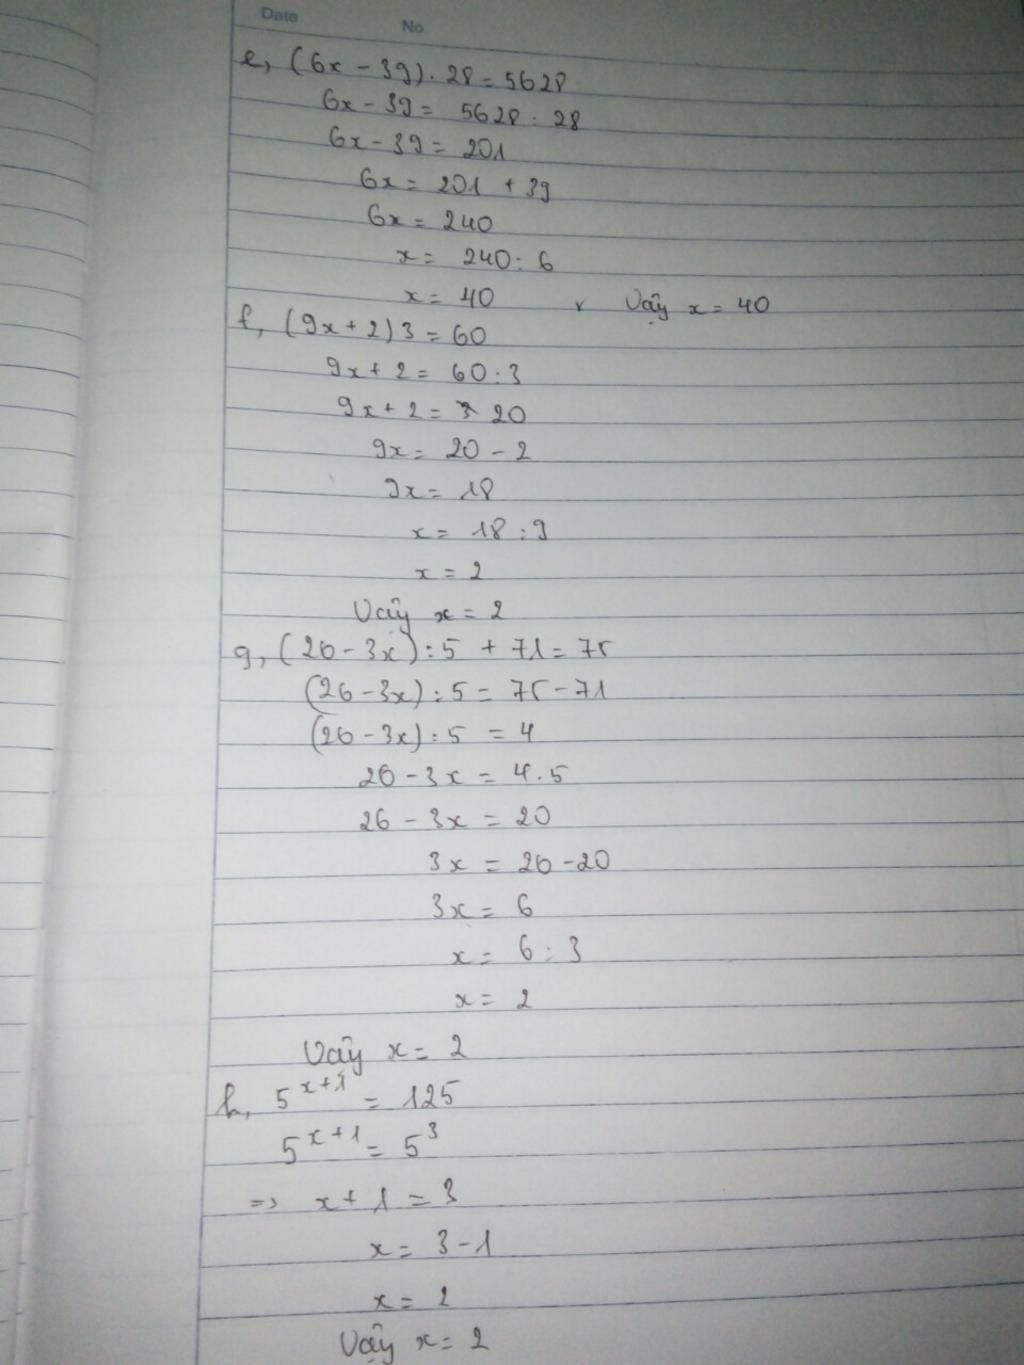 Date No
e, (6x - 39). 28 = 5628
6x - 39 = 5628 : 28
6x - 39 = 201
6x = 201 + 39
6x = 240
x = 240 : 6
x = 40 Vậy x = 40
f, (9x + 2) 3 = 60
9x + 2 = 60 : 3
9x + 2 = 20
9x = 20 - 2
9x = 18
x = 18 : 9
x = 2
Vậy x = 2
g, (26 - 3x) : 5 + 71 = 75
(26 - 3x) : 5 = 75 - 71
(26 - 3x) : 5 = 4
26 - 3x = 4.5
26 - 3x = 20
3x = 26 - 20
3x = 6
x = 6 : 3
x = 2
Vậy x = 2
h, 5^{x+1} = 125
5^{x+1} = 5^3
=> x + 1 = 3
x = 3 - 1
x = 2
Vậy x = 2